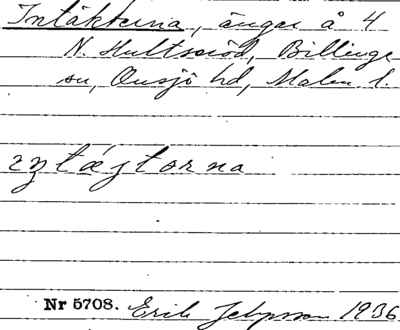 Intäkterna, ängar å 4
N. Hultseröd, Billinge
sn, Onsjö hd, Malm. l.
Nr 5708. Erik Jeppsson 1936